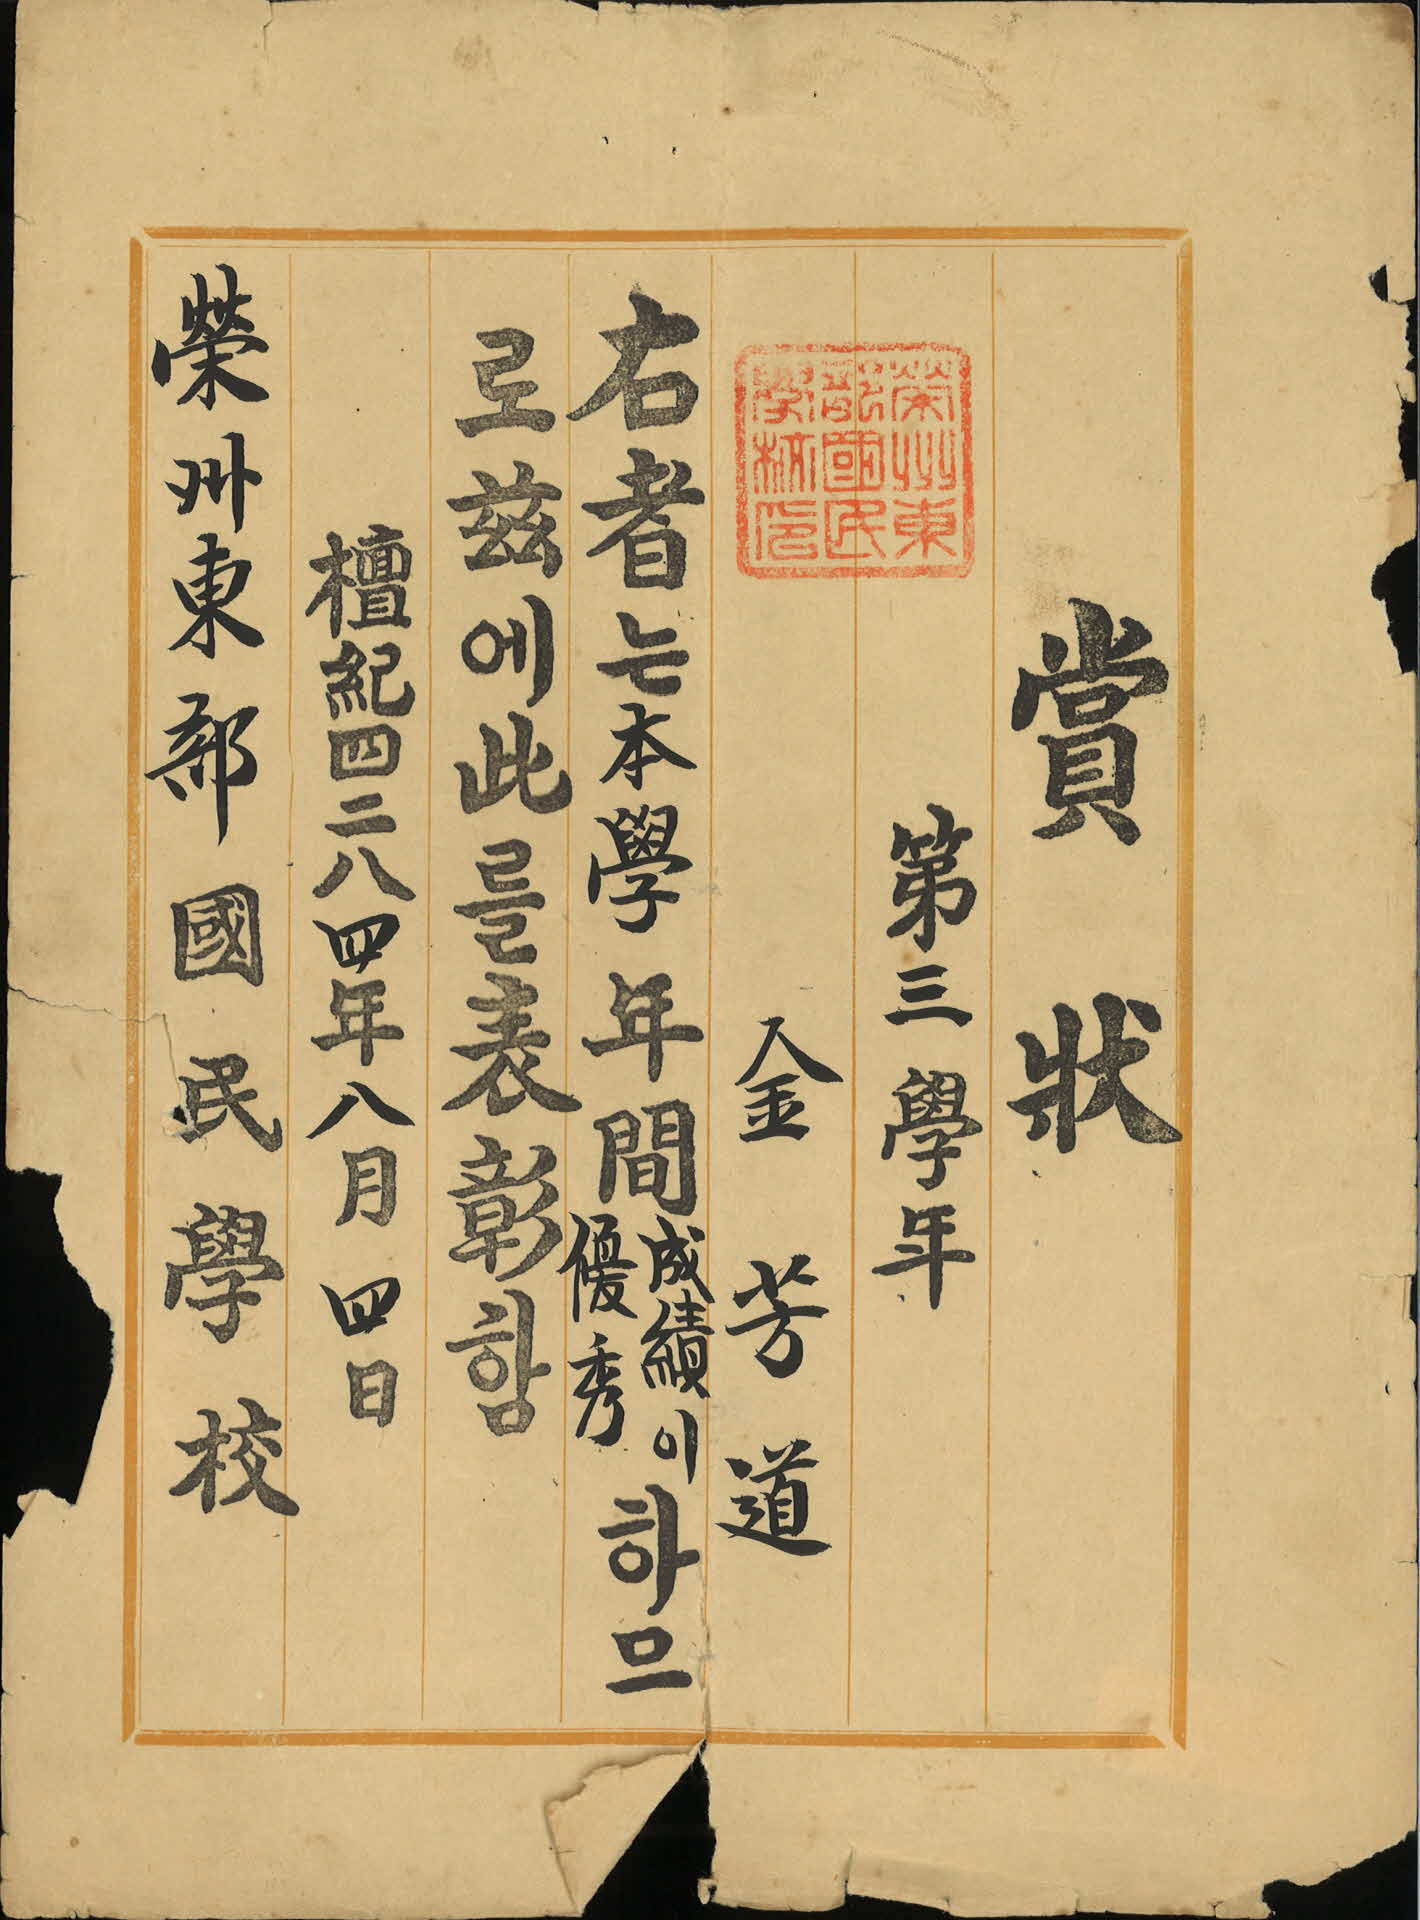 賞狀
第三學年
金芳道
右者는本學年間成績이優秀하므
로玆에此를表彰함
檀紀四二八四年八月四日
榮州東部國民學校
榮州東
部國民
學校印